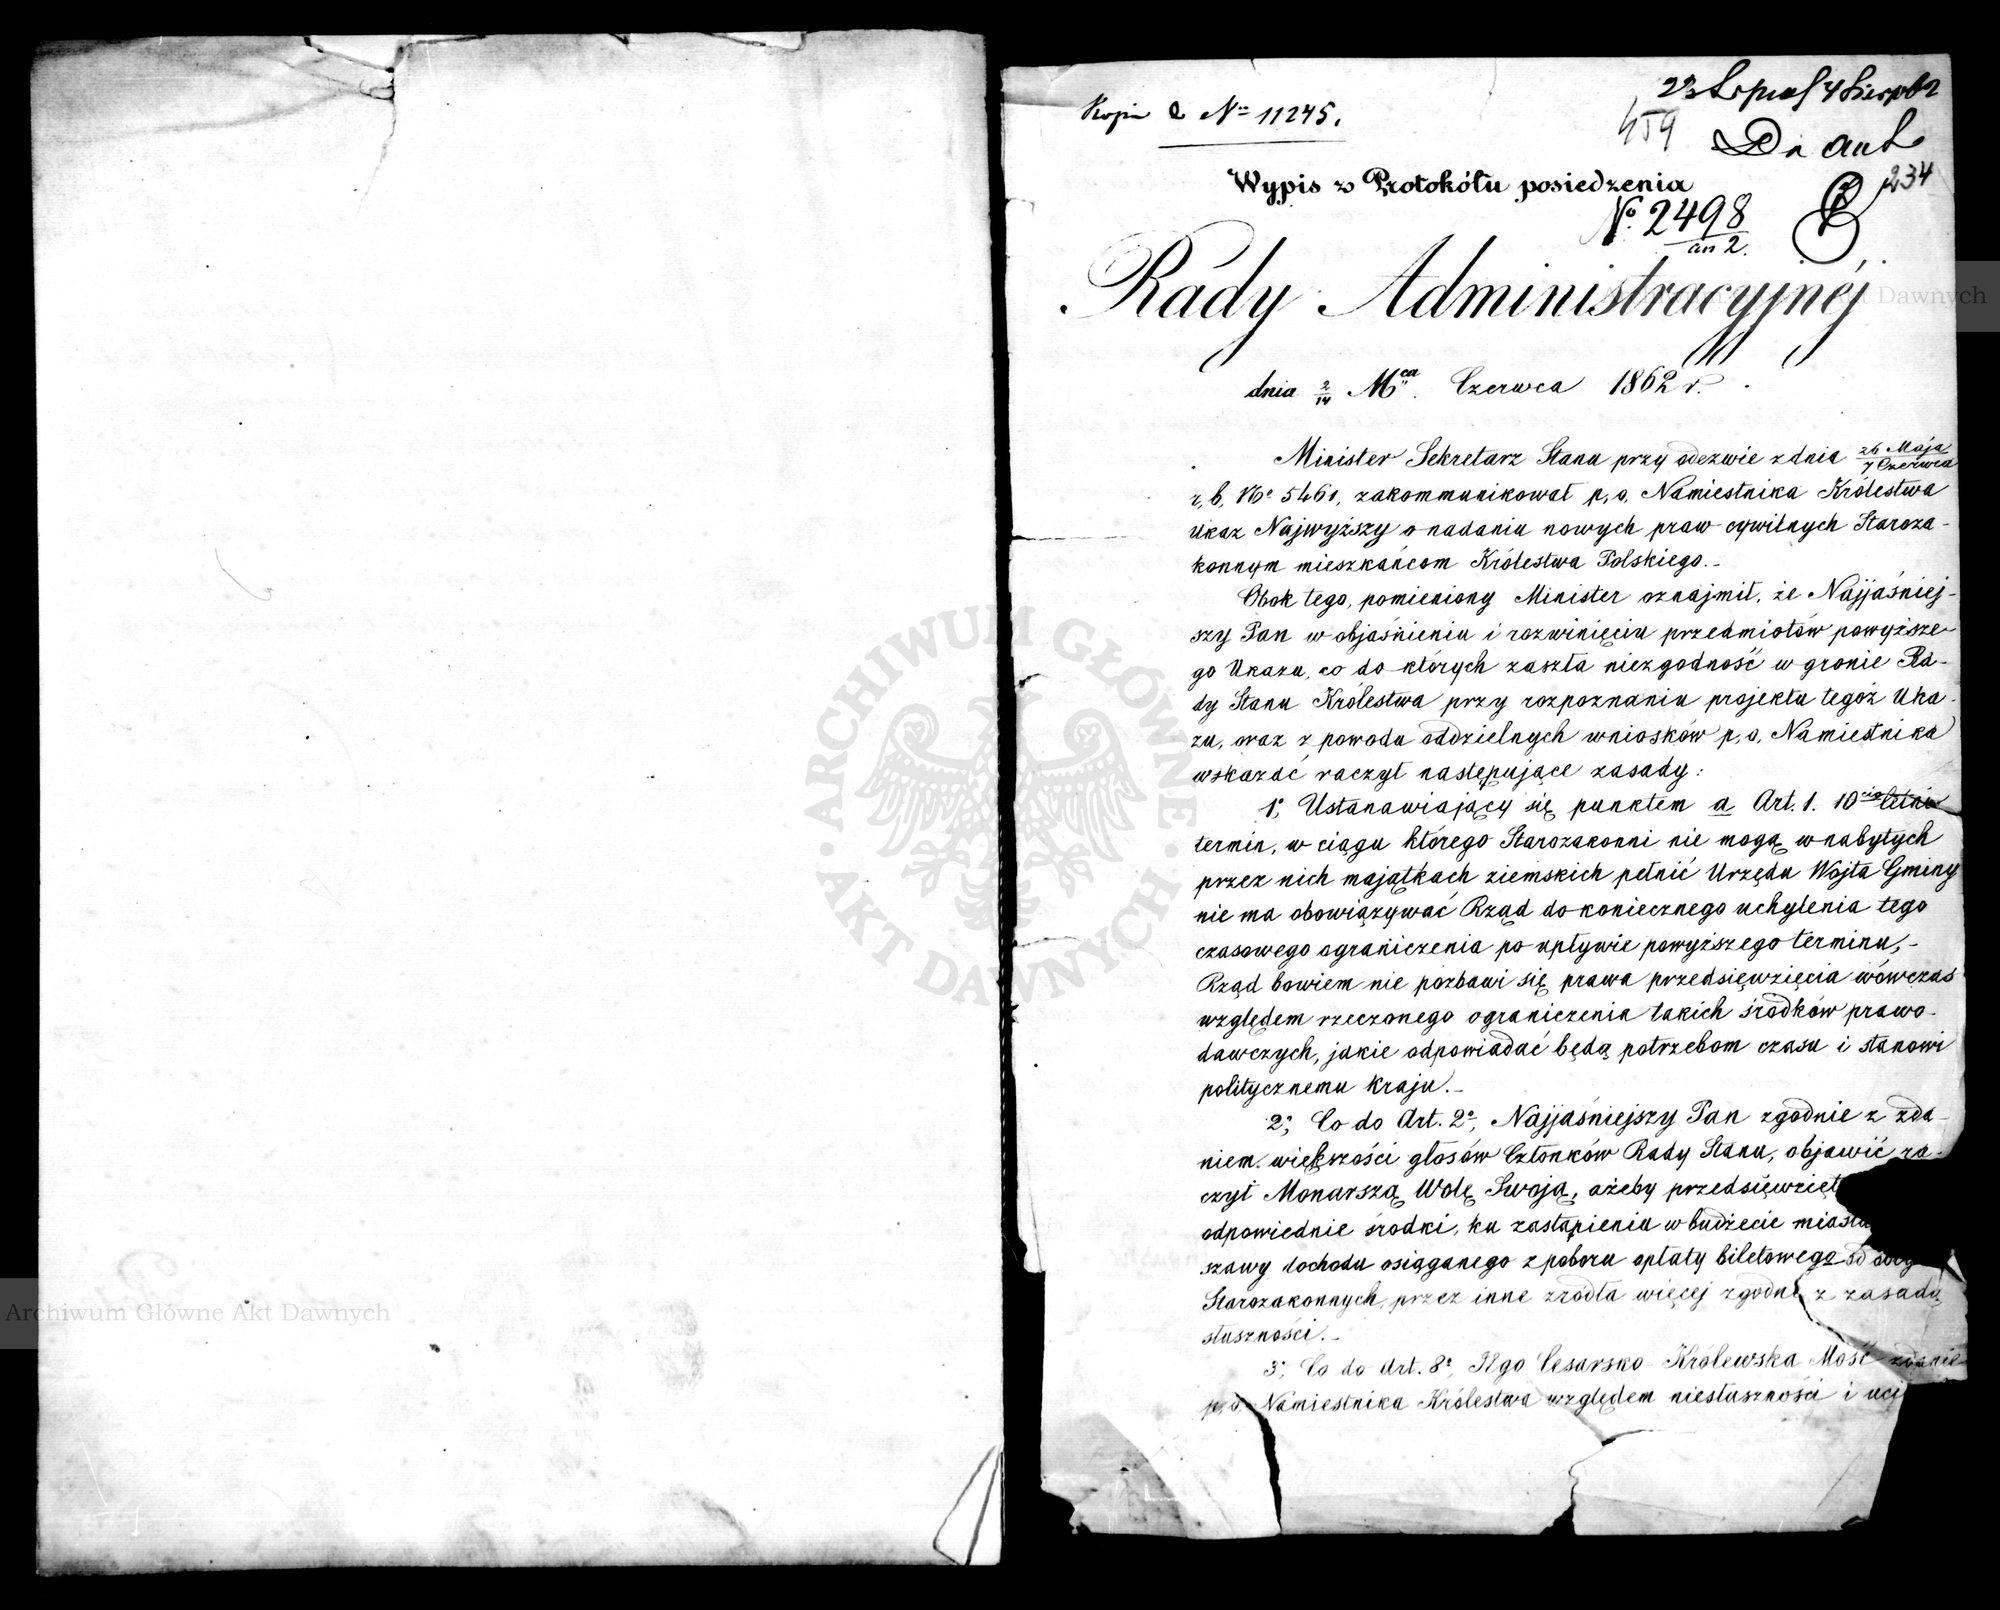 Kopia N° 11245.
459
234
Wypis z Protokółu posiedzenia
N° 2498
Rady Administracyjnéj
dnia 2/14 Mca Czerwca 1862 r.
Minister Sekretarz Stanu przy odezwie z dnia 26 Maja/7 Czerwca
r, b, N° 5461, zakommunikował p, o, Namiestnika Królestwa
Ukaz Najwyższy o nadaniu nowych praw cywilnych Staroza-
konnym mieszkańcom Królestwa Polskiego.-
Obok tego, pomieniony Minister oznajmił, że Najjaśniej-
szy Pan w objaśnieniu i rozwinięciu przedmiotów powyższe-
go Ukazu, co do których zaszła niezgodność w gronie Ra-
dy Stanu Królestwa przy rozpoznaniu projektu tegoż Uka-
zu, oraz z powodu oddzielnych wniosków p, o, Namiestnika
wskazać raczył następujące zasady:
1°, Ustanawiający się punktem a Art. 1. 10cio letni
termin, w ciągu którego Starozakonni nie mogą w nabytych
przez nich majątkach ziemskich pełnić Urzędu Wójta Gminy
nie ma obowiązywać Rząd do koniecznego uchylenia tego
czasowego ograniczenia po upływie powyższego terminu,-
Rząd bowiem nie pozbawi się prawa przedsięwzięcia wówczas
względem rzeczonego ograniczenia takich środków prawo-
dawczych, jakie odpowiadać będą potrzebom czasu i stanowi
politycznemu kraju.-
2°, Co do Art. 2°, Najjaśniejszy Pan zgodnie z zda-
niem większości głosów Członków Rady Stanu, objawić ra-
czył Monarszą Wolę Swoją, ażeby przedsięwzięt
odpowiednie środki, ku zastąpieniu w budżecie miasta
szawy dochodu osiąganego z poboru opłaty biletowego od
Starozakonnych, przez inne źródła więcej zgodne z zasadą
słuszności.-
3°, Co do Art. 8°, Jego Cesarsko-Królewska Mość zdanie
p, o, Namiestnika Królestwa względem niesłuszności i uci
ARCHIWUM GŁÓWNE AKT DAWNYCH
Archiwum Główne Akt Dawnych
Akt Dawnych